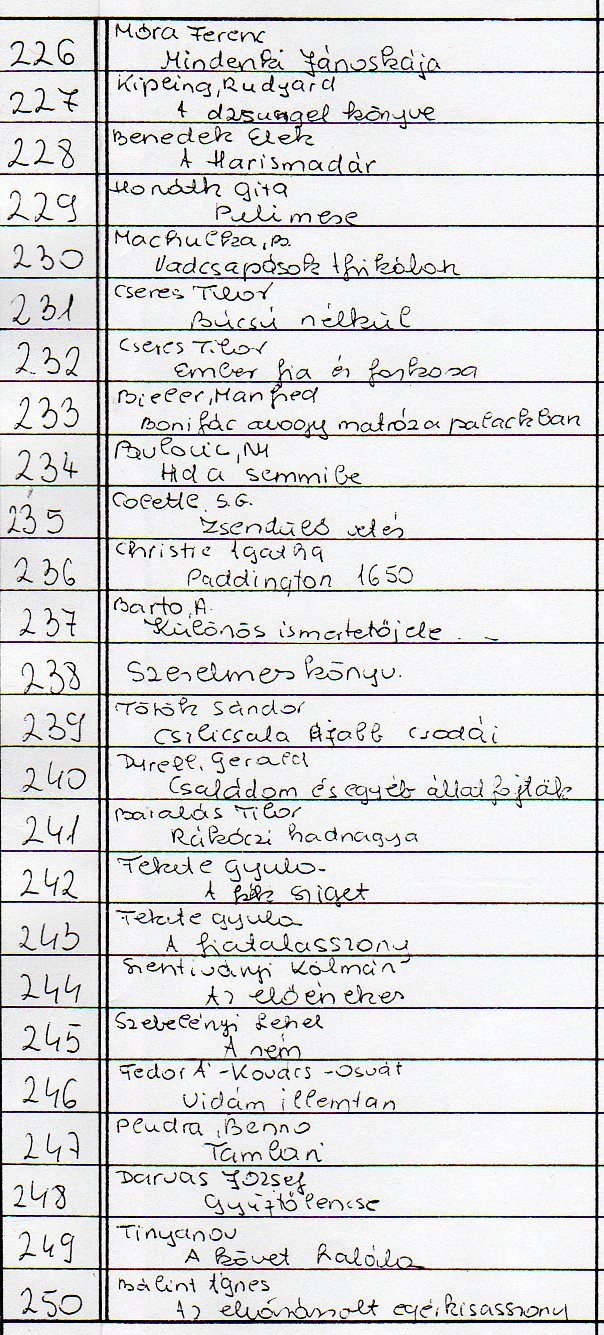 226
Móra Ferenc
Mindenki Jánoskája
227
Kipling, Rudyard
A dzsungel könyve
228
Benedek Elek
A Harismadár
229
Horváth Gita
Pulimese
230
Machulka, B.
Vadcsapások Afrikában
231
Cseres Tibor
Búcsú nélkül
232
Cseres Tibor
Ember fia és farkasa
233
Bieler, Manfred
Bonifác avagy matróza palackban
234
Bulovic, M
Híd a semmibe
235
Colette S.G.
Zsendülő vetés
236
Christie Agatha
Paddington 1650
237
Barto, A.
Különös ismertetőjele
238
Szerelmes könyv.
239
Török Sándor
Csilicsala újabb csodái
240
Durell, Gerald
Családom és egyéb állatfajták
241
Barabás Tibor
Rákóczi hadnagya
242
Fekete Gyula
A kék sziget
243
Fekete Gyula
A fiatalasszony
244
Szentiványi Kálmán
Az előénekes
245
Szeberényi Lehel
A rém
246
Fedor Á - Kovács - Osvát
Vidám illemtan
247
Pludra, Benno
Tambari
248
Darvas József
Gyűjtőlencse
249
Tinyanov
A követ halála
250
Bálint Ágnes
Az elvarázsolt egérkisasszony